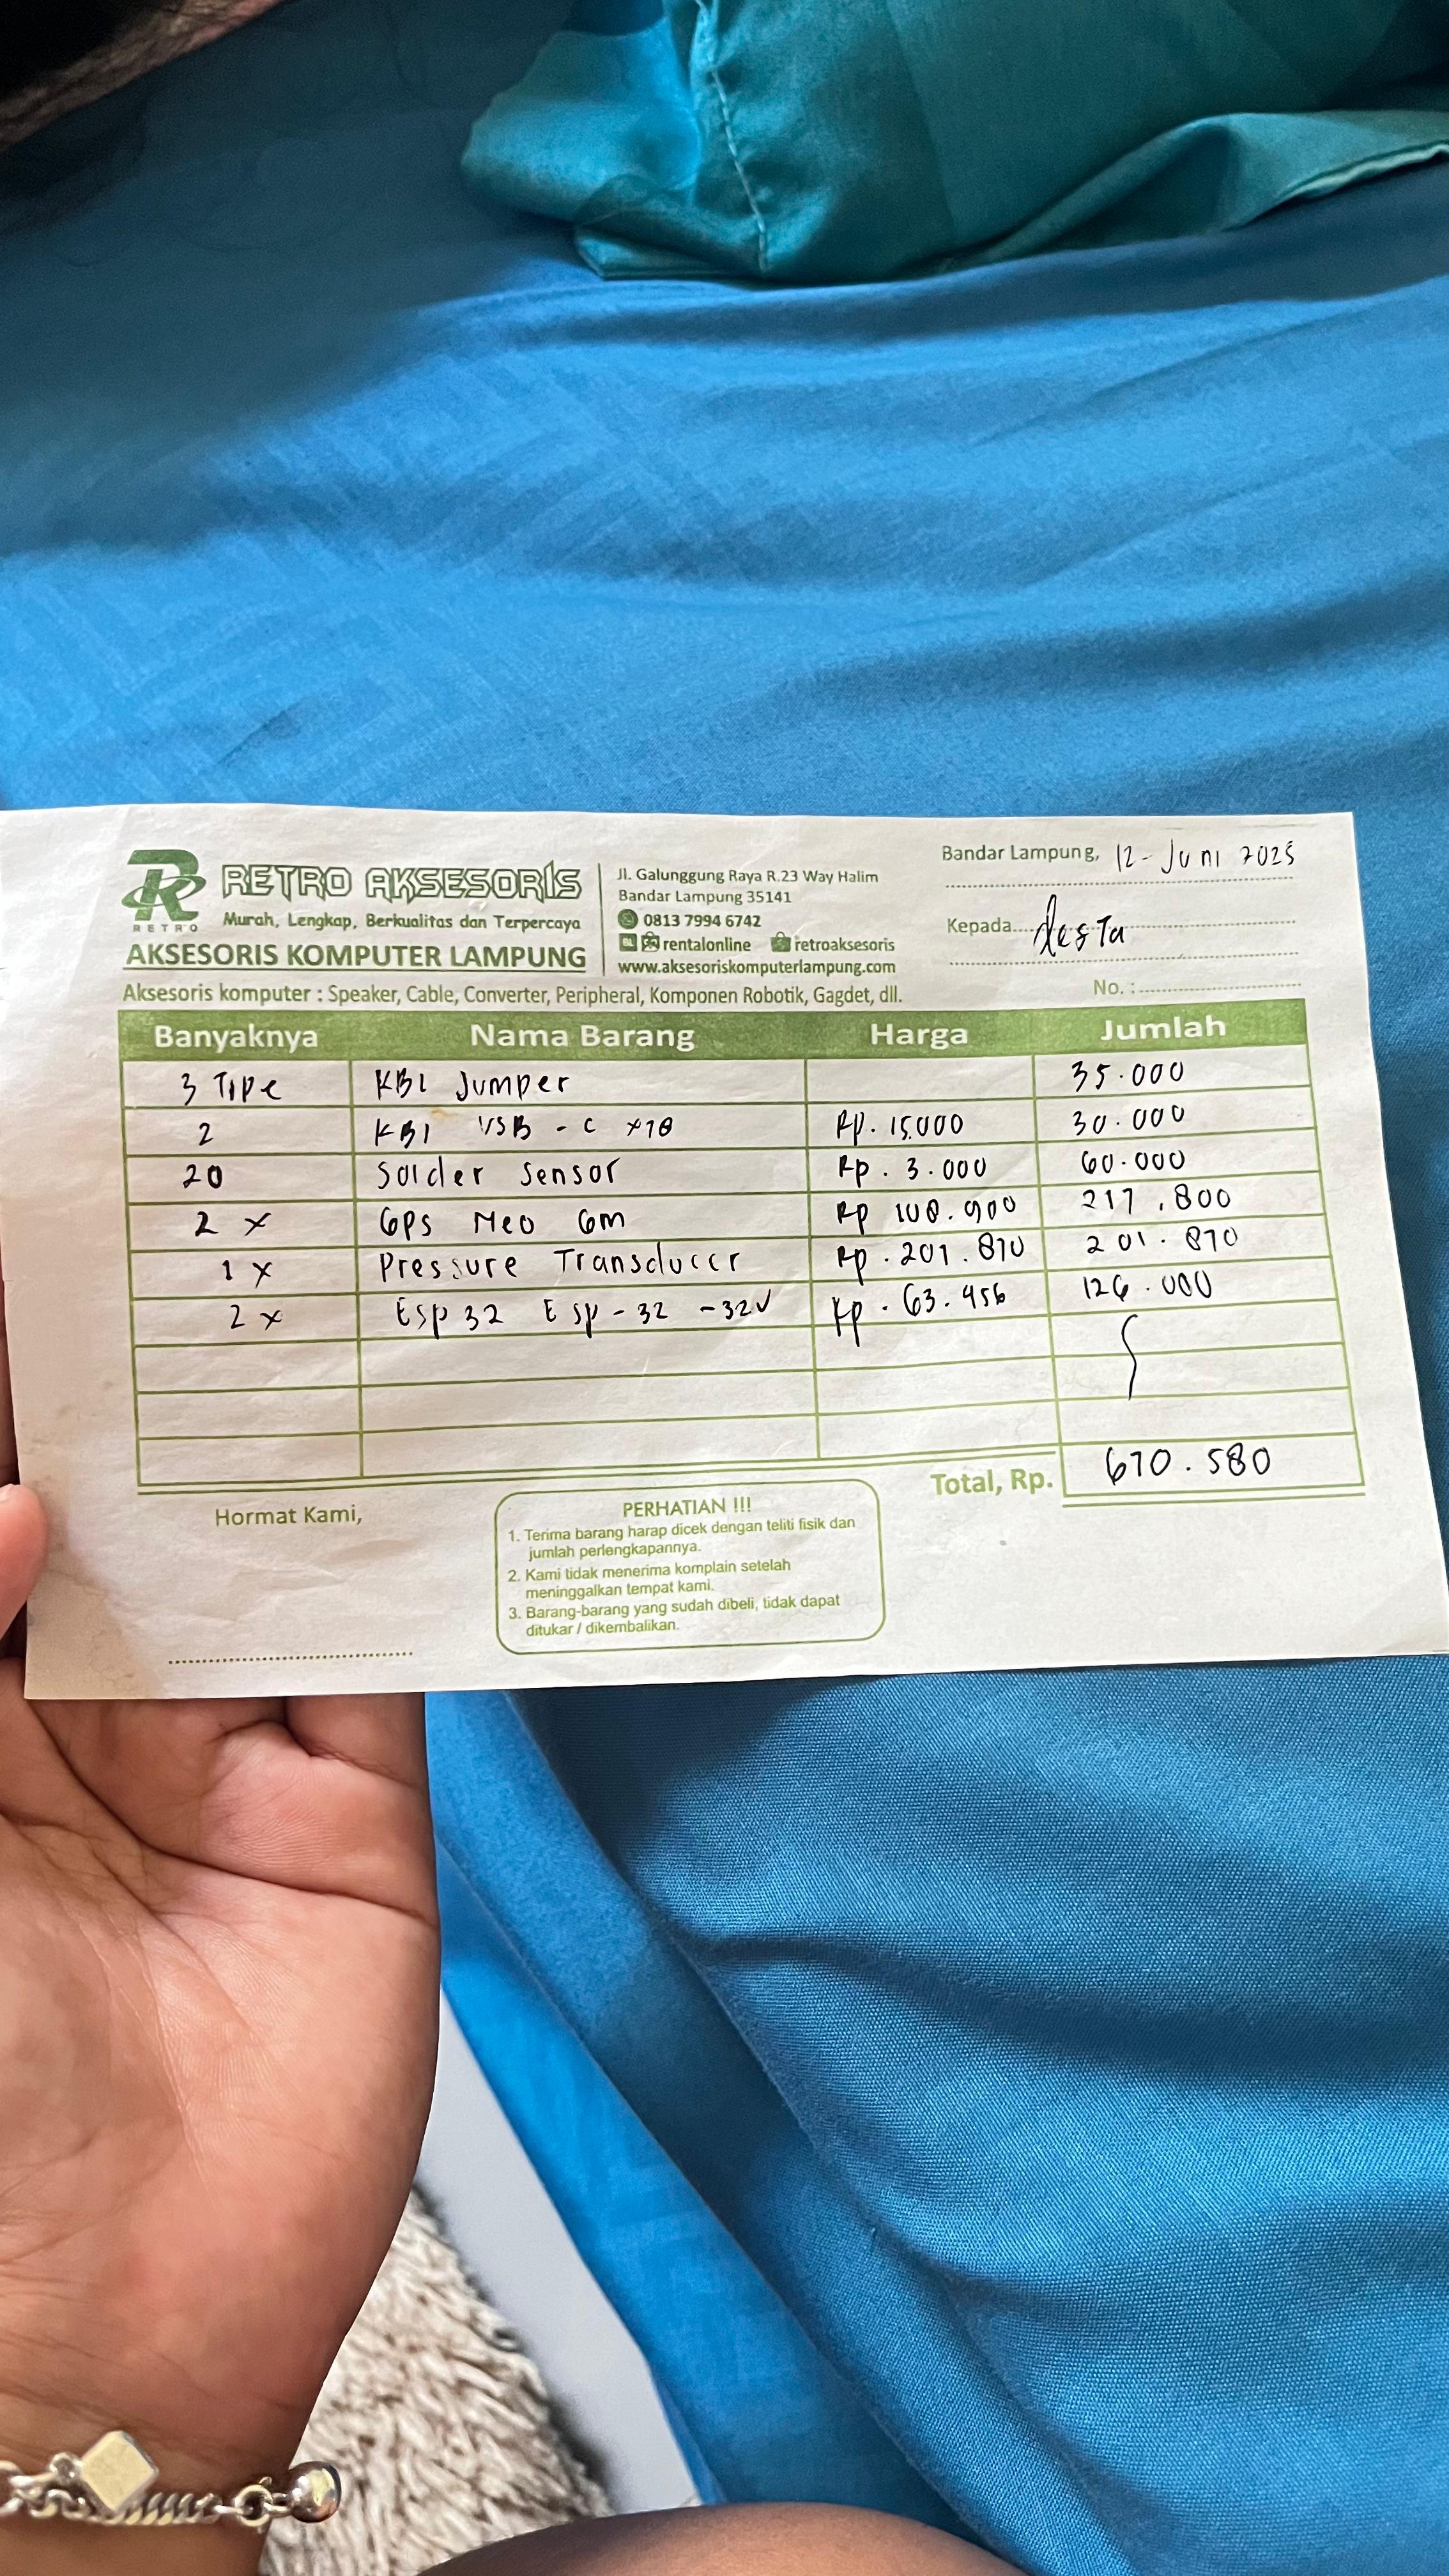 RETRO
RETRO AKSESORIS
Murah, Lengkap, Berkualitas dan Terpercaya
AKSESORIS KOMPUTER LAMPUNG
Jl. Galunggung Raya R.23 Way Halim
Bandar Lampung 35141
0813 7994 6742
rentalonline retroaksesoris
www.aksesoriskomputerlampung.com
Bandar Lampung, 12 - Juni 2025
Kepada desta
No. :
Aksesoris komputer : Speaker, Cable, Converter, Peripheral, Komponen Robotik, Gagdet, dll.
Banyaknya Nama Barang Harga Jumlah
3 Tipe KBl Jumper 35.000
2 KBl USB - C Rp. 15.000 30.000
20 Solder Sensor Rp. 3.000 60.000
2 x GPS Neo 6m Rp 108.900 217.800
1 x Pressure Transducer Rp. 201.870 201.870
2 x Esp 32 Esp - 32 - 32U Rp. 63.456 126.000
Total, Rp. 670.580
Hormat Kami,
PERHATIAN !!!
1. Terima barang harap dicek dengan teliti fisik dan
jumlah perlengkapannya.
2. Kami tidak menerima komplain setelah
meninggalkan tempat kami.
3. Barang-barang yang sudah dibeli, tidak dapat
ditukar / dikembalikan.